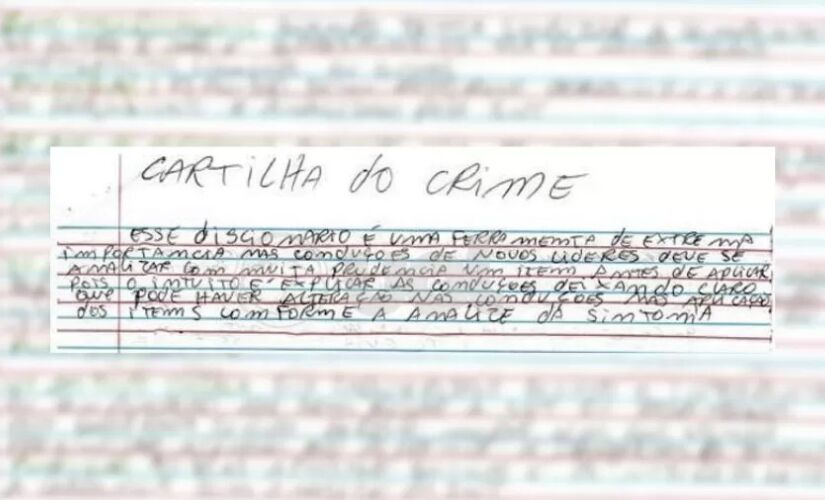 CARTILHA do CRIME
ESSE disCiONARIO É UMA FERRAMENTA DE EXTREMA
IMPORTANCIA NAS CONDUÇOES DE NOVOS LIDERES DEVE SE
ANALIZAR COM MUITA PRUDENCIA UM ITEM ANTES DE APLICAR
POIS O INTUITO E EXPLICAR AS CONDUÇOES DEIXANDO CLARO
QUE PODE HAVER ALTERAÇÃO NAS CONDUÇOES NAS APLICAÇÃO
DOS ITENS CONFORME A ANALIZE DA SINTONIA